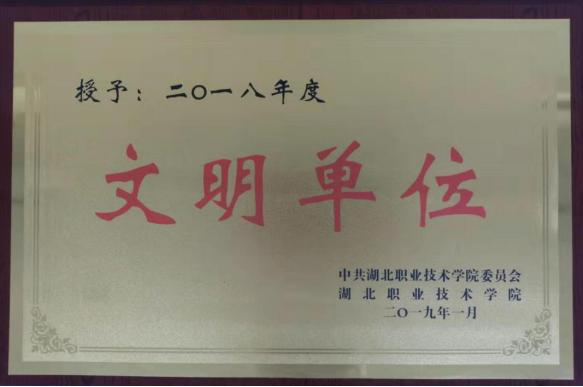 授予：二〇一八年度
文明单位
中共湖北职业技术学院委员会
湖北职业技术学院
二〇一九年一月